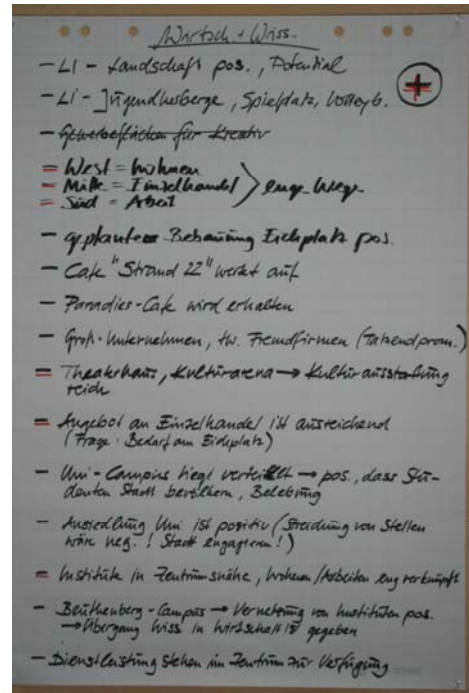 Wirtsch. + Wiss.
+
- LI - Landschaft pos., Potential
- Li - Jugendherberge, Spielplatz, Volleyb.
- Gewerbeflächen für Kreativ
= West = wohnen
= Mitte = Einzelhandel } enge Wege
= Süd = Arbeit
- geplante Bebauung Eichplatz pos.
- Cafe "Strand 22" wertet auf
- Paradies-Cafe wird erhalten
- Groß-Unternehmen, tw. Fremdfirmen (Tatzendprom.)
= Theaterhaus, Kulturarena → Kulturausstattung
reich
= Angebot an Einzelhandel ist ausreichend
(Frage: Bedarf am Eichplatz)
- Uni-Campus liegt verteilt → pos., dass Stu-
denten Stadt bevölkern, Belebung
- Ansiedlung Uni ist positiv (Streichung von Stellen
wäre neg.! Stadt engagieren!)
= Institute in Zentrumsnähe, wohnen/Arbeiten eng verknüpft
- Beuthenberg-Campus → Vernetzung von Instituten pos.
→ Übergang Wiss in Wirtschaft ist gegeben
- Dienstleistung stehen im Zentrum zur Verfügung